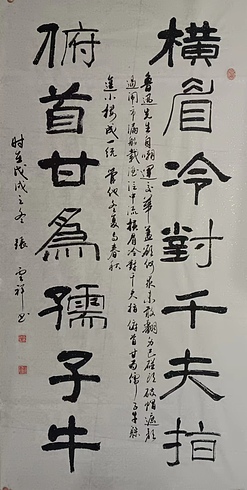 橫眉冷對千夫指
魯迅先生自嘲運交華蓋欲何求未敢翻身已碰頭破帽遮顏
過鬧市漏船載酒泛中流橫眉冷對千夫指俯首甘為孺子牛躲
進小樓成一統管他冬夏與春秋
俯首甘為孺子牛
時在戊戌之冬張雲祥書